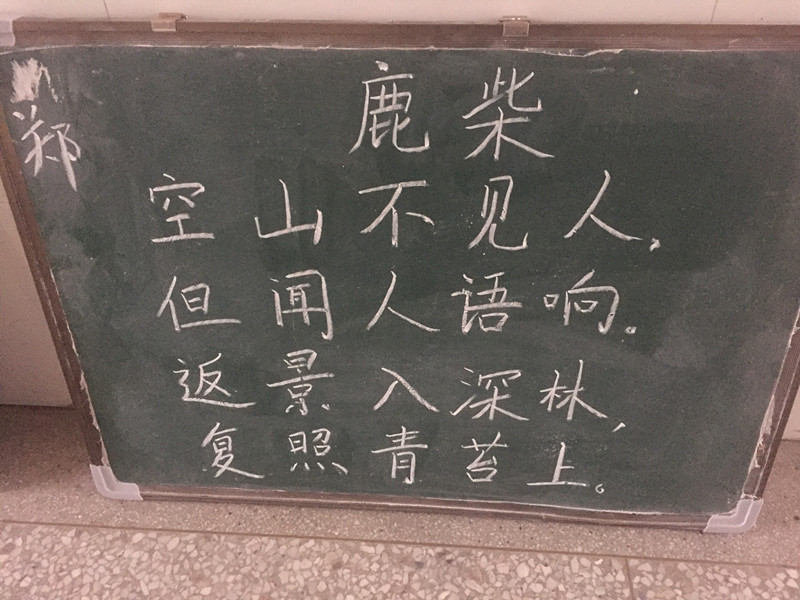 鹿柴
郑
空山不见人,
但闻人语响。
返景入深林,
复照青苔上。